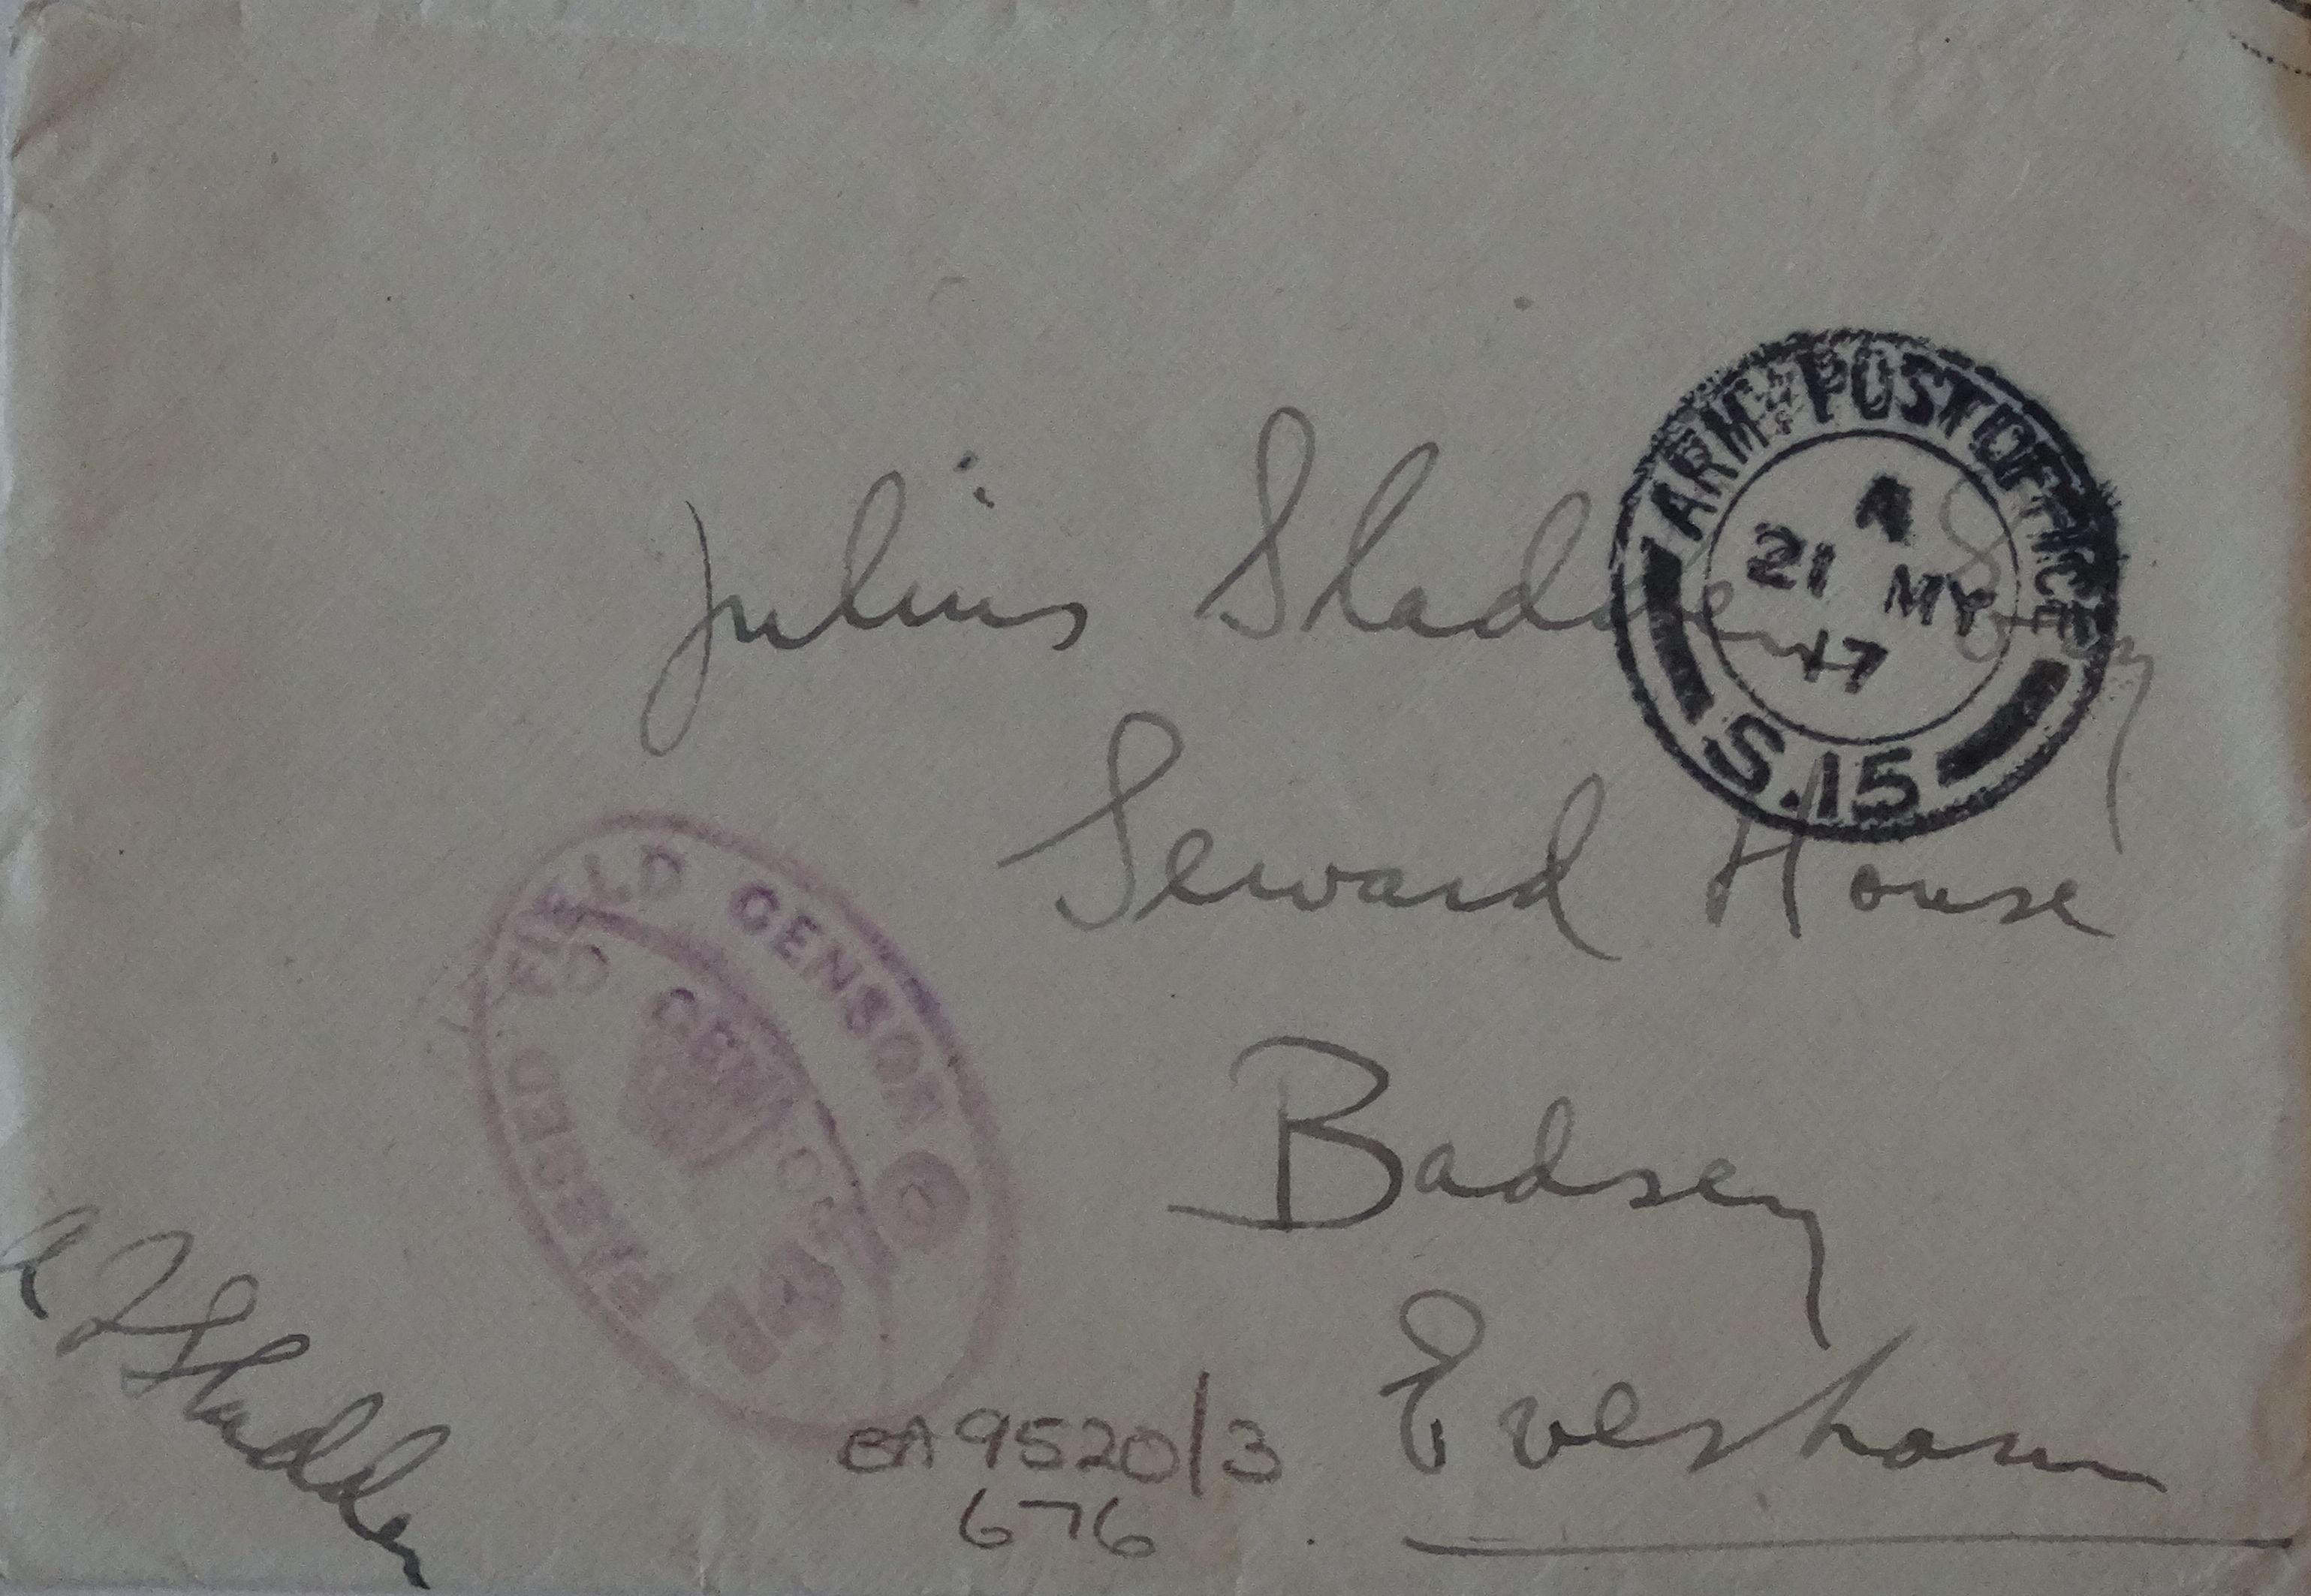 Julius Sladden Esq
Seward House
Badsey
Evesham
ARMY POST OFFICE
A
21 MY
17
S.15
FIELD CENSOR
PASSED
A F Sladden
BA 9520/3
676